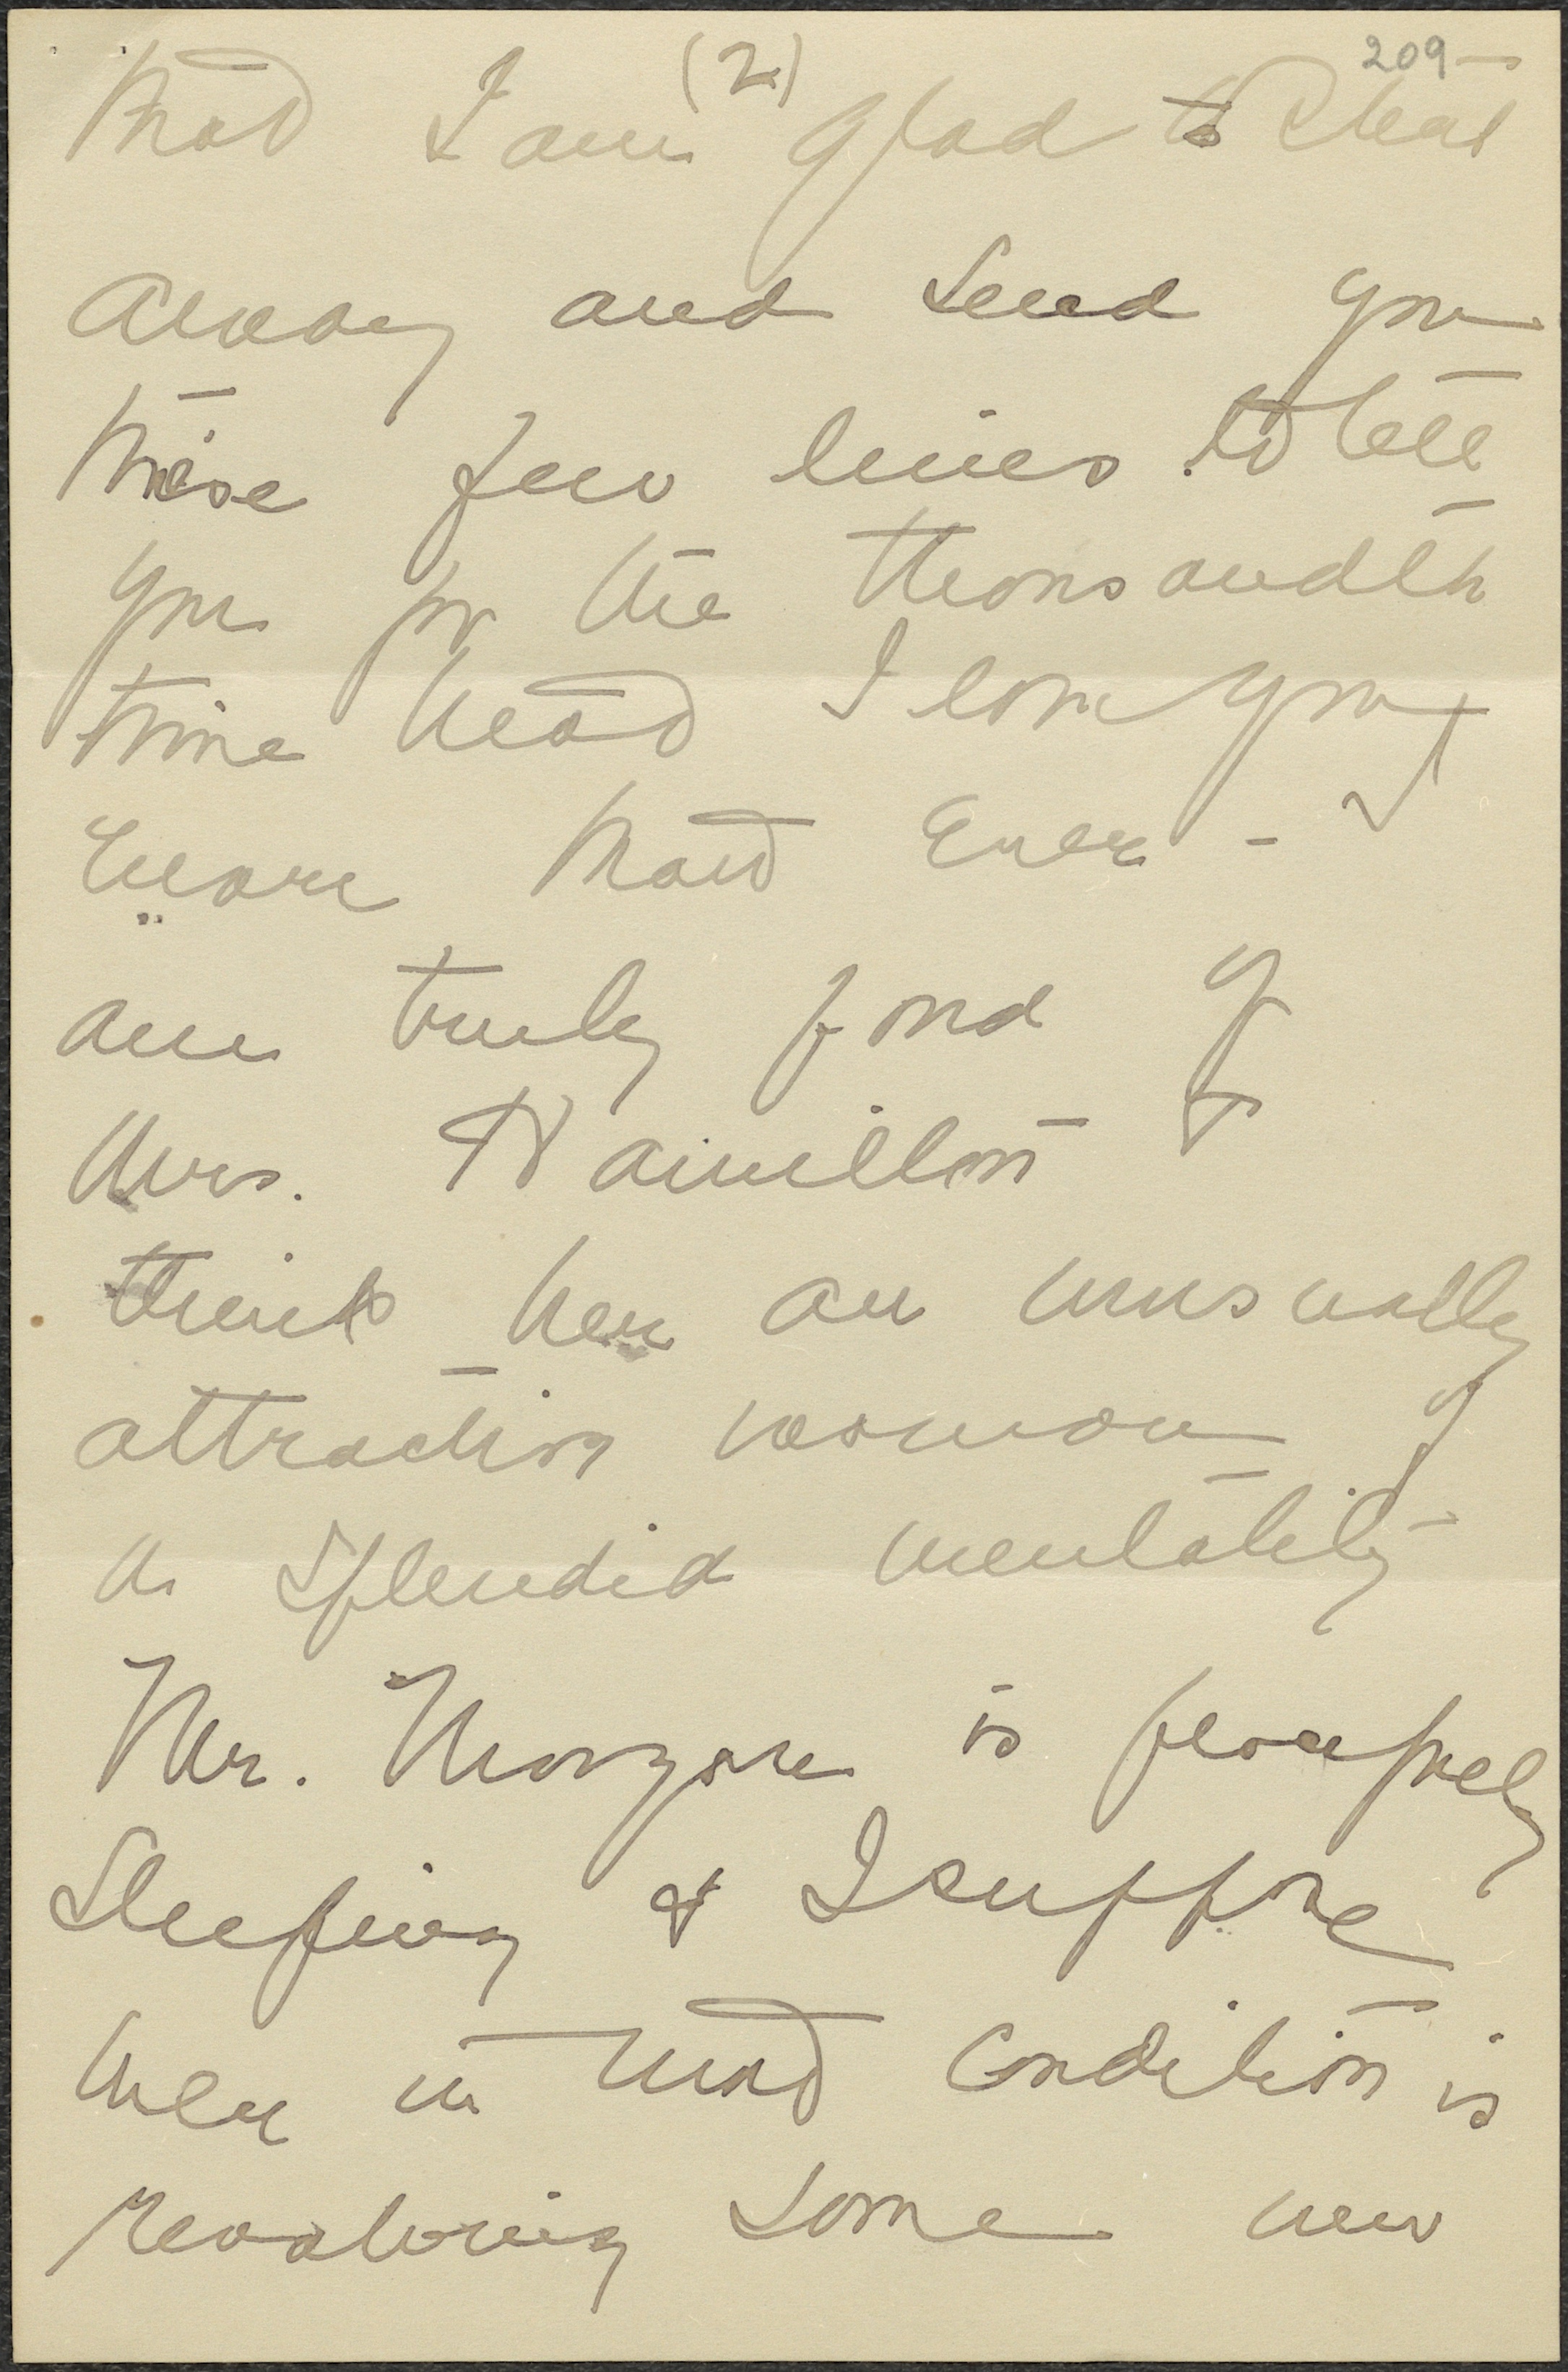 (2)
209
that I am glad to steal
away and send you
these few lines to tell
you for the thousandth
time that I love you
more than ever - I
am truly fond of
Mrs. Hamilton &
think her an unusually
attractive woman of
a splendid mentality
Mr. Morgan is peacefully
sleeping & I suppose
even in that condition is
revolving some new